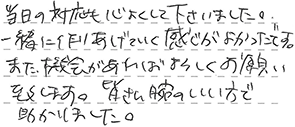 当日の対応も心よくして下さいました。
一緒に作りあげていく感じがよかったです。
また、機会があればよろしくお願い
致します。皆さん腕のいい方で
助かりました。